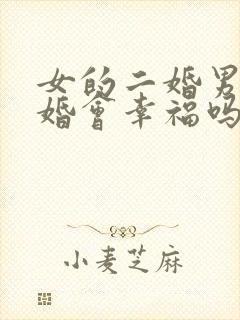 女的二婚男
婚會幸福吗
小麦芝麻